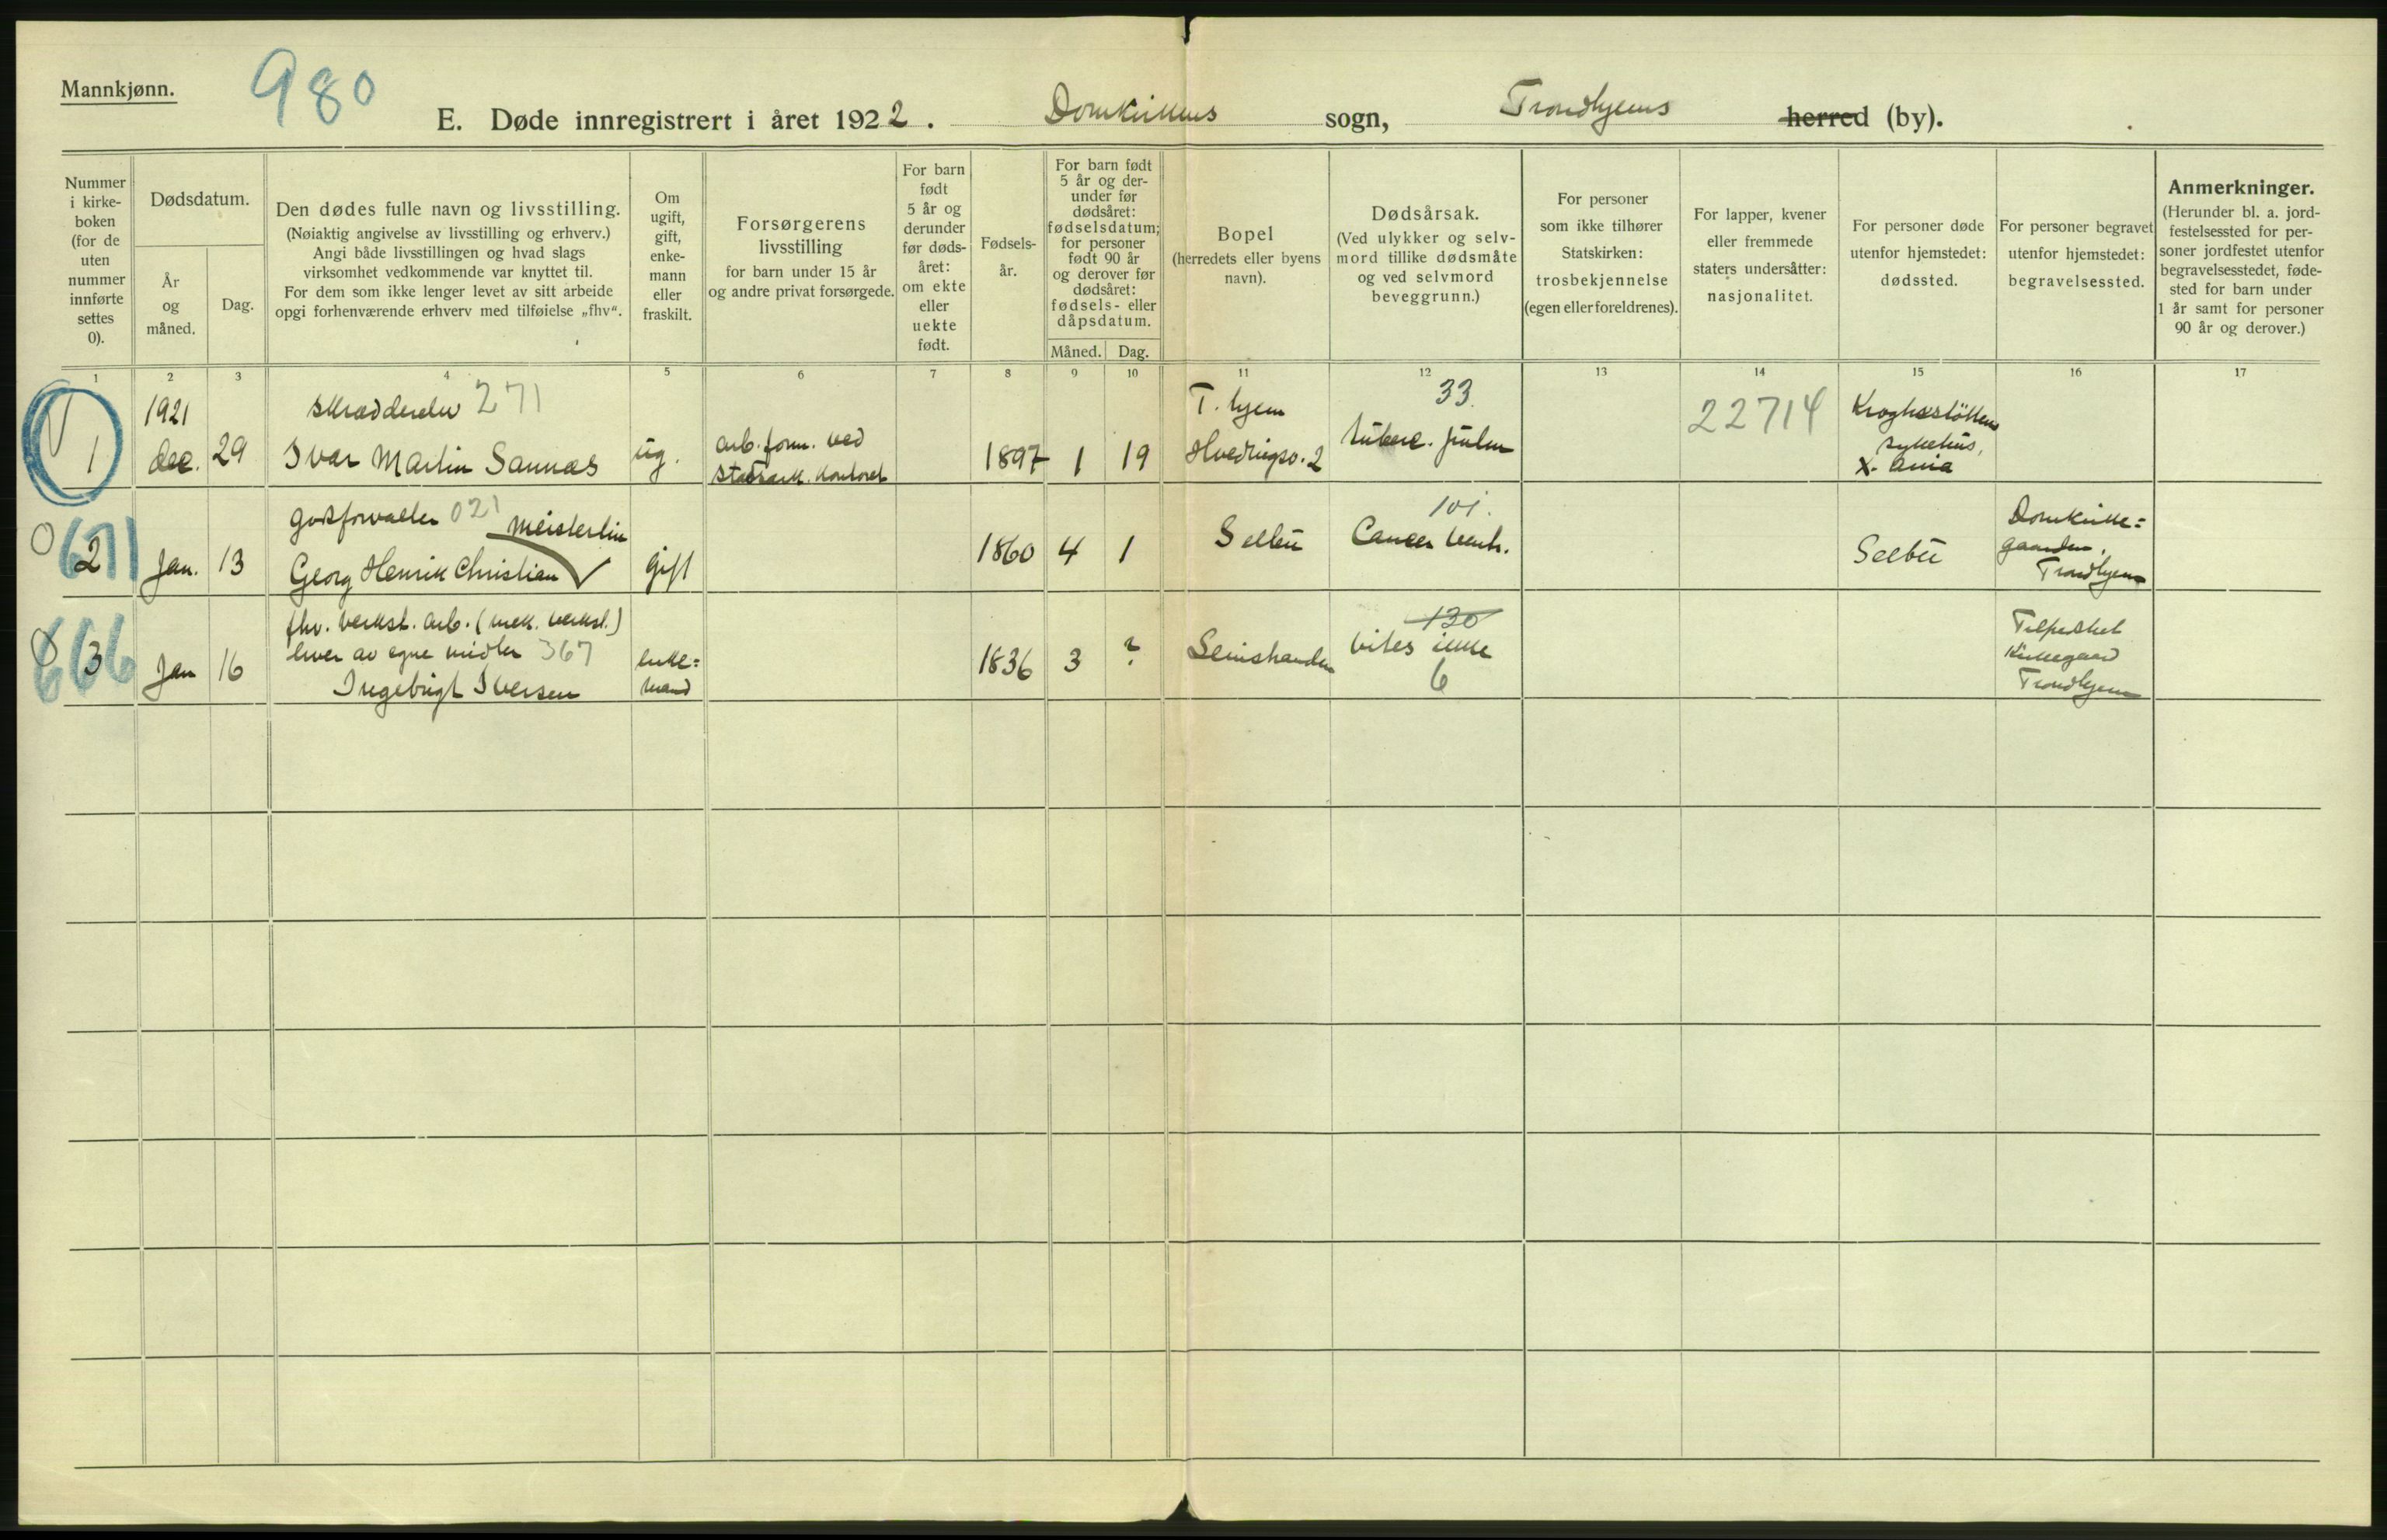 Mannkjønn.
980
E. Døde innregistrert i året 1922. Domkirkens sogn, Trondhjems herred (by).
Nummer
i kirke-
boken
(for de
uten
nummer
innførte
settes
0).
Dødsdatum.
År
og
måned.
Dag.
Den dødes fulle navn og livsstilling.
(Nøiaktig angivelse av livsstilling og erhverv.)
Angi både livsstillingen og hvad slags
virksomhet vedkommende var knyttet til.
For dem som ikke lenger levet av sitt arbeide
opgi forhenværende erhverv med tilføielse „fhv“.
Om
ugift,
gift,
enke-
mann
eller
fraskilt.
Forsørgerens
livsstilling
for barn under 15 år
og andre privat forsørgede.
For barn
født
5 år og
derunder
før døds-
året:
om ekte
eller
uekte
født.
Fødsels-
år.
For barn født
5 år og der-
under før
dødsåret:
fødselsdatum;
for personer
født 90 år
og derover før
dødsåret:
fødsels- eller
dåpsdatum.
Måned. Dag.
Bopel
(herredets eller byens
navn).
Dødsårsak.
(Ved ulykker og selv-
mord tillike dødsmåte
og ved selvmord
beveggrunn.)
For personer
som ikke tilhører
Statskirken:
trosbekjennelse
(egen eller foreldrenes).
For lapper, kvener
eller fremmede
staters undersåtter:
nasjonalitet.
For personer døde
utenfor hjemstedet:
dødssted.
For personer begravet
utenfor hjemstedet:
begravelsessted.
Anmerkninger.
(Herunder bl. a. jord-
festelsessted for per-
soner jordfestet utenfor
begravelsesstedet, føde-
sted for barn under
1 år samt for personer
90 år og derover.)
1 2 3 4 5 6 7 8 9 10 11 12 13 14 15 16 17
1
1921
dec. 29
skrædderelev 271
Ivar Martin Sannæs
ug.
arb. form. ved
stadsark. kontoret
1897 1 19
T. hjem
Hvedingsv. 2
33.
tuberc. pulm
22714
Kroghsstøtten
sykehus,
X. ania
0
671
2
Jan. 13
godsforvalter 021 Meisterlin
Georg Henrik Christian
gift
1860 4 1
Selbu
101.
Cancer ventr.
Selbu
Domkirke=
gaarden,
Trondhjem
0
666
3
Jan 16
fhv. verkst. arb. (mek. verkst.)
lever av egne midler 367
Ingebrigt Iversen
enke=
mand
1836 3 ?
130
vites ikke
6
Kirkegaard
Trondhjem